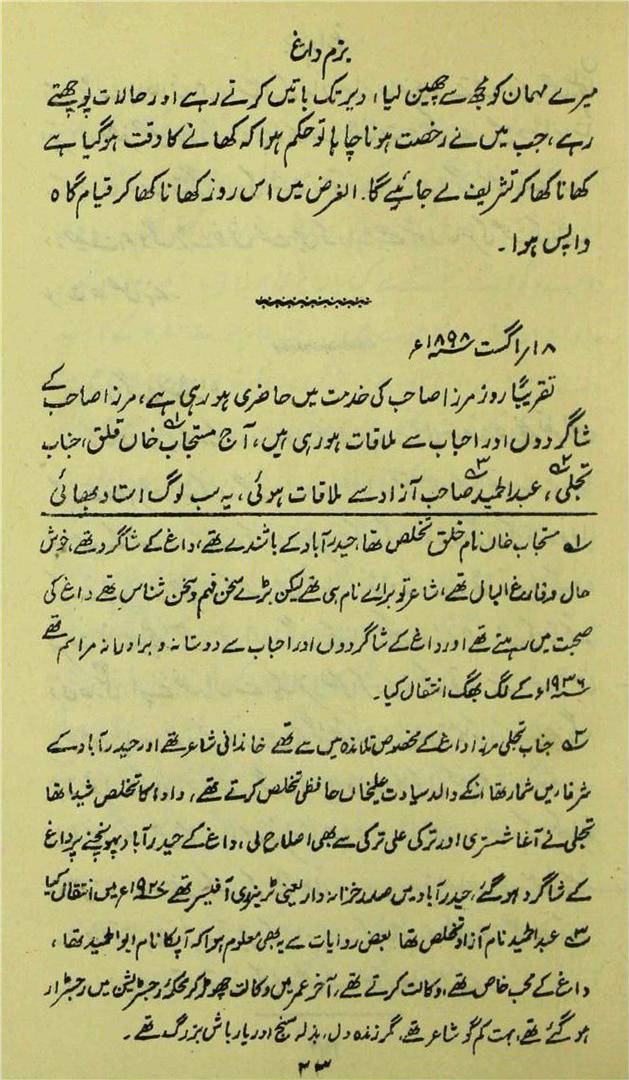 بزم داغ
میرے مہمان کو مجھ سے چھین لیا، دیر تک باتیں کرتے رہے اور حالات پوچھتے
رہے، جب میں نے رخصت ہونا چاہا تو حکم ہوا کہ کھانے کا وقت ہوگیا ہے
کھانا کھاکر تشریف لے جائیے گا۔ الغرض میں اس روز کھانا کھاکر قیام گاہ
واپس ہوا۔
۱۸ر اگست ۱۸۹۸ء
تقریباً روز مرزا صاحب کی خدمت میں حاضری ہو رہی ہے، مرزا صاحب کے
شاگردوں اور احباب سے ملاقات ہورہی ہیں، آج مستجاب خاں قلق،۱ جناب
تجلی۲، عبدالحمید۳ صاحب آزاد سے ملاقات ہوئی، یہ سب لوگ استاد بھائی
۱ مستجاب خاں نام خلق تخلص تھا، حیدرآباد کے باشندے تھے، داغ کے شاگرد تھے، خوش
حال و فارغ البال تھے، شاعر تو برائے نام ہی تھے لیکن بڑے سخن فہم و سخن شناس تھے داغ کی
صحبت میں رہتے تھے اور داغ کے شاگردوں اور احباب سے دوستانہ و برادرانہ مراسم تھے
۱۹۳۶ء کے لگ بھگ انتقال کیا۔
۲ جناب تجلی مرزا داغ کے مخصوص تلامذہ میں سے تھے خاندانی شاعر تھے اور حیدرآباد کے
شرفاء میں شمار تھا انکے والد سیادت علیخاں حافظی تخلص کرتے تھے، دادا کا تخلص شیدا تھا
تجلی نے آغا شستری اور ترکی علی ترکی سے بھی اصلاح لی، داغ کے حیدرآباد پہونچنے پر داغ
کے شاگرد ہوگئے، حیدرآباد میں صدر خزانہ دار یعنی ٹریژری آفیسر تھے ۱۹۲۷ء میں انتقال کیا
۳ عبدالحمید نام آزاد تخلص تھا بعض روایات سے یہ بھی معلوم ہوا کہ آپکا نام ابوالحمید تھا،
داغ کے محب خاص تھے، وکالت کرتے تھے، آخر عمر میں وکالت چھوڑ کر محکمہ رجسٹریشن میں رجسٹرار
ہوگئے تھے، بہت کم گو شاعر تھے، مگر زندہ دل، بذلہ سنج اور یار باش بزرگ تھے۔
۳۳